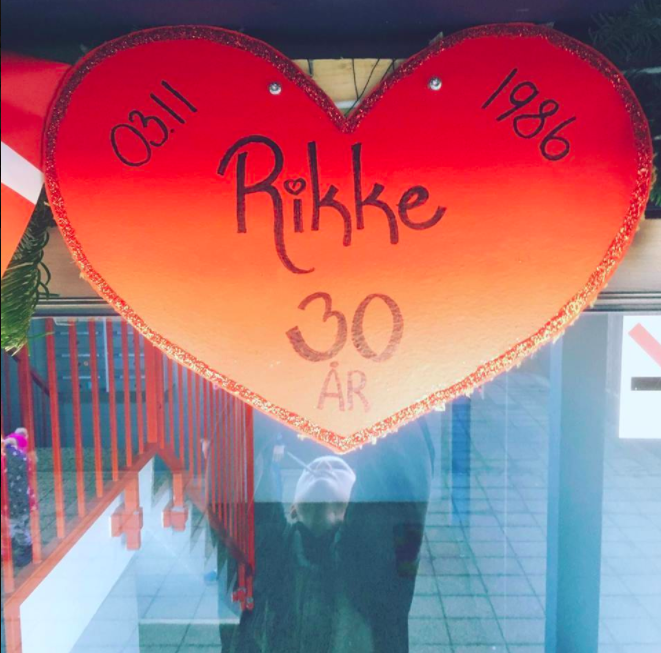 03.11
1986
Rikke
30
ÅR